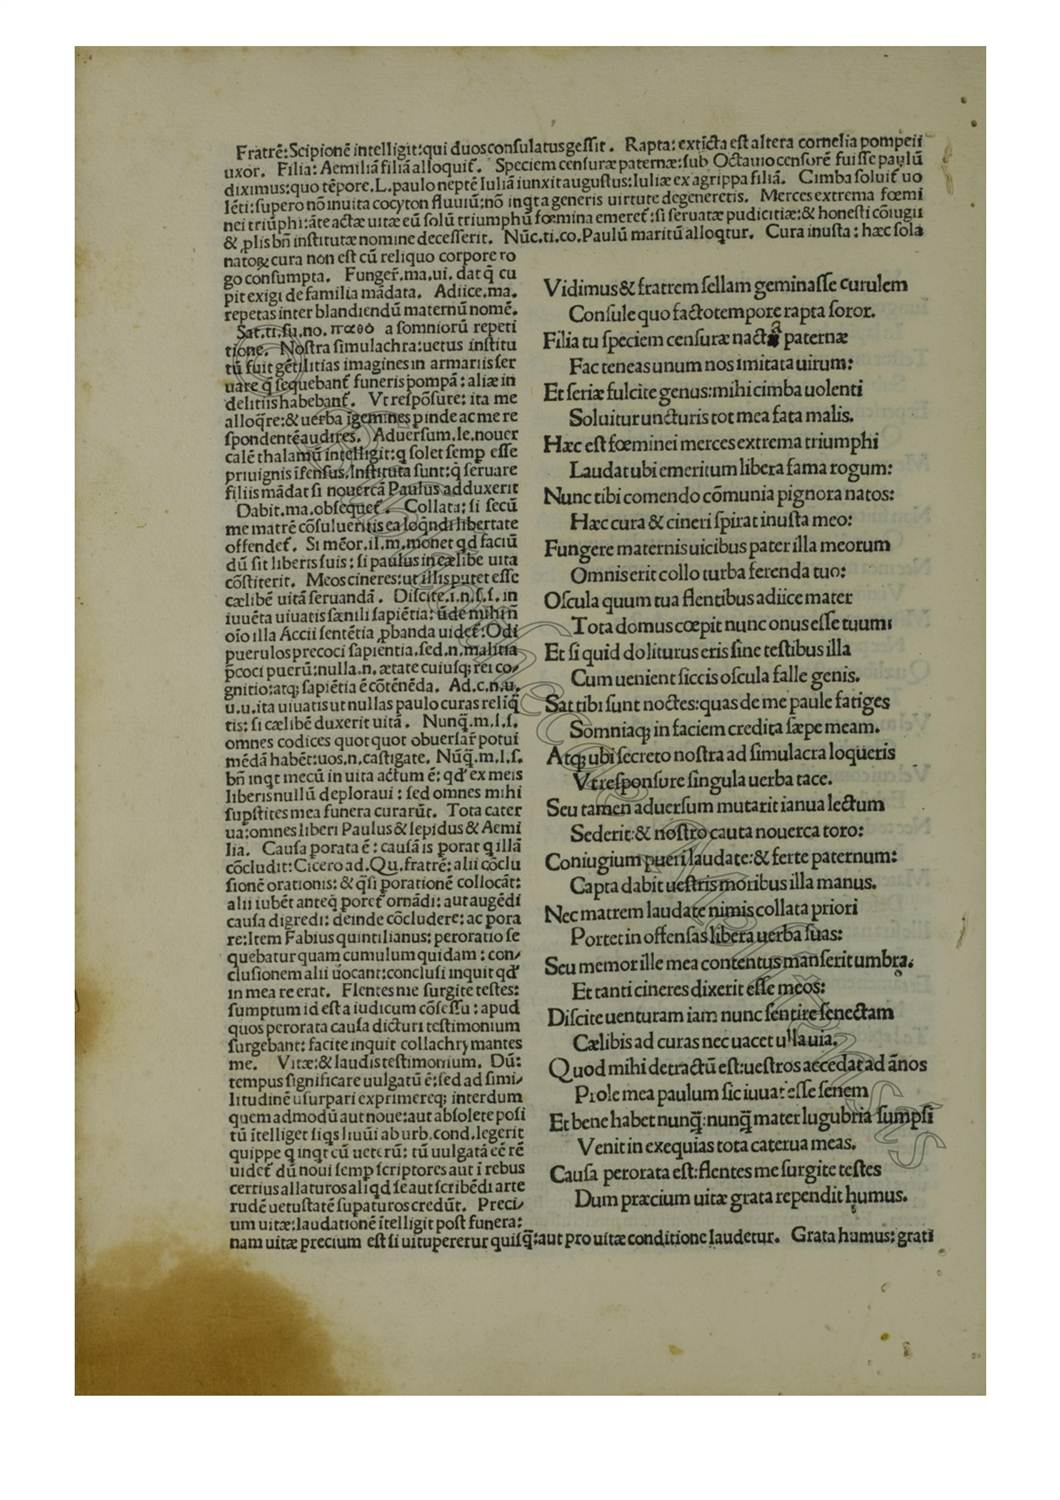 Fratrē:Scipionē intelligit:qui duos conſulatus geſſit. Rapta:extīcta eſt altera cornelia pompeii
uxor. Filia: Aemiliā filiā alloquiť. Speciem cenſuræ paternæ:ſub Octauio cenſorē fuiſſe paulū
diximus:quo tēpore.L.paulo neptē Iuliā iunxit auguſtus:Iuliæ ex agrippa filiā. Cimba ſoluiť uo
lēti:ſupero nō inuita cocyton fluuiū:nō inqta generis uirtute degeneretis. Merces extrema fœmi
nei triūphi:āte actæ uitæ eū ſolū triumphū fœmina emereť:ſi ſeruatæ pudicitiæ:& honeſti cōiugii
& ꝓlis bñ inſtitutæ nomine deceſſerit. Nūc.ti.co.Paulū maritū alloqtur. Cura inuſta:hæc ſola
natoꝝ cura non eſt cū reliquo corpore ro
go conſumpta. Funger̄.ma.ui. dat q̄ cu
pit exigi de familia mādata. Adiice.ma.
repetas inter blandiendū maternū nomē.
Sat.ti.ſu.no. παθό a ſomniorū repeti
tione. Noſtra ſimulachra:uetus inſtitu
tū fuit gētilitias imagines in armariis ſer
uare q̄ ſequebanť funeris pompā:aliæ in
delitiis habebanť. Vt reſpōſure: ita me
alloqre:& uerba īgemines ꝓinde ac me re
ſpondentē audires. Aduerſum.le.nouer
calē thalamū intelligit:q ſolet ſemp eſſe
priuignis īfenſus. Inſtituta ſunt:q̄ ſeruare
filiis mādat ſi nouercā Paulus adduxerit
Dabit.ma.obſequeť. Collata:ſi ſecū
me matrē cōſulueritis ea loqndi libertate
offendeť. Si mēor.il.m.monet qd faciū
dū ſit liberis ſuis: ſi paulus in cælibe uita
cōſtiterit. Meos cineres:ut illis putet eſſe
cælibē uitā ſeruandā. Diſcite.i.n.ſ.ſ. in
iuuēta uiuatis ſænili ſapiētia: ūde mihi ñ
oīo illa Accii ſentētia ꝓbanda uideť:Odi
puerulos precoci ſapientia.ſed.n.malitia
p̄coci puerū:nulla.n.ætate cuiuſq; rei co/
gnitio:atq; ſapiētia ē cōtēnēda. Ad.c.n.u.
u.u.ita uiuatis ut nullas paulo curas reliq
tis: ſi cælibē duxerit uitā. Nunq̄.m.l.ſ.
omnes codices quotquot obuerſar̄ potui
mēdā habēt:uos.n.caſtigate. Nūq̄.m.l.ſ.
bñ inqt mecū in uita actum ē: qď ex meis
liberis nullū deploraui : ſed omnes mihi
ſupſtites mea funera curarūt. Tota cater
ua:omnes liberi Paulus & lepidus & Aemi
lia. Cauſa porata ē: cauſā is porat q illā
cōcludit:Cicero ad.Qu.fratrē: alii cōclu
ſionē orationis: & q̄ſi porationē collocāt:
alii iubēt anteq̄ poreť ornādi: aut augēdi
cauſa digredi: deinde cōcludere: ac pora
re:Item Fabius quintilianus: peroratio ſe
quebatur quam cumulum quidam : con/
cluſionem alii uocant:concluſi inquit qď
in mea re erat. Flentes me ſurgite teſtes:
ſumptum id eſt a iudicum cōſeſſu : apud
quos perorata cauſa dicturi teſtimonium
ſurgebant: facite inquit collachrymantes
me. Vitæ:& laudis teſtimonium. Dū:
tempus ſignificare uulgatū ē:ſed ad ſimi/
litudinē uſurpari exprimereq; interdum
quemadmodū aut noue:aut abſolete poſi
tū ītelliget ſiqs liuiū ab urb.cond.legerit
quippe q inqt cū ueterū: tū uulgatā eē rē
uideť dū noui ſemp ſcriptores aut ī rebus
certius allaturos aliqd ſe aut ſcribēdi arte
rudē uetuſtatē ſupaturos credūt. Preci/
um uitæ:laudationē ītelligit poſt funera:
Vidimus & fratrem ſellam geminaſſe curulem
Conſule quo factotempore rapta ſoror.
Filia tu ſpeciem cenſuræ nacta paternæ
Fac teneas unum nos imitata uirum:
Et ſeriæ fulcite genus:mihi cimba uolenti
Soluitur uncturis tot mea fata malis.
Hæc eſt fœminei merces extrema triumphi
Laudat ubi emeritum libera fama rogum:
Nunc tibi comendo cōmunia pignora natos:
Hæc cura & cineri ſpirat inuſta meo:
Fungere maternis uicibus pater illa meorum
Omnis erit collo turba ferenda tuo:
Oſcula quum tua flentibus adiice mater
Tota domus cœpit nunc onus eſſe tuum:
Et ſi quid doliturus eris ſine teſtibus illa
Cum uenient ſiccis oſcula falle genis.
Sat tibi ſunt noctes:quas de me paule fatiges
Somniaq; in faciem credita ſæpe meam.
Atq; ubi ſecreto noſtra ad ſimulacra loqueris
Vt reſponſure ſingula uerba tace.
Seu tamen aduerſum mutarit ianua lectum
Sederit:& noſtro cauta nouerca toro:
Coniugium pueri laudate:& ferte paternum:
Capta dabit ueſtris moribus illa manus.
Nec matrem laudate nimis collata priori
Portet in offenſas libera uerba ſuas:
Seu memor ille mea contentus manſerit umbra.
Et tanti cineres dixerit eſſe meos:
Diſcite uenturam iam nunc ſentire ſenectam
Cælibis ad curas nec uacet ulla uia.
Quod mihi detractū eſt:ueſtros accedat ad ānos
Prole mea paulum ſic iuuat eſſe ſenem
Et bene habet nunq̄:nunq̄ mater lugubria ſumpſi
Venit in exequias tota caterua meas.
Cauſa perorata eſt:flentes me ſurgite teſtes
Dum præcium uitæ grata rependit humus.
nam uitæ precium eſt ſi uitupereur quiſq̄:aut pro uitæ conditione laudetur. Grata humus:grati